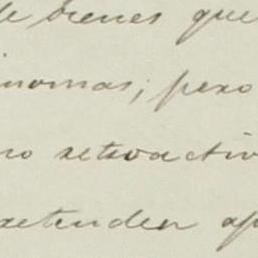 de bienes que
inomas; pero
no retroactiv
retenden ap